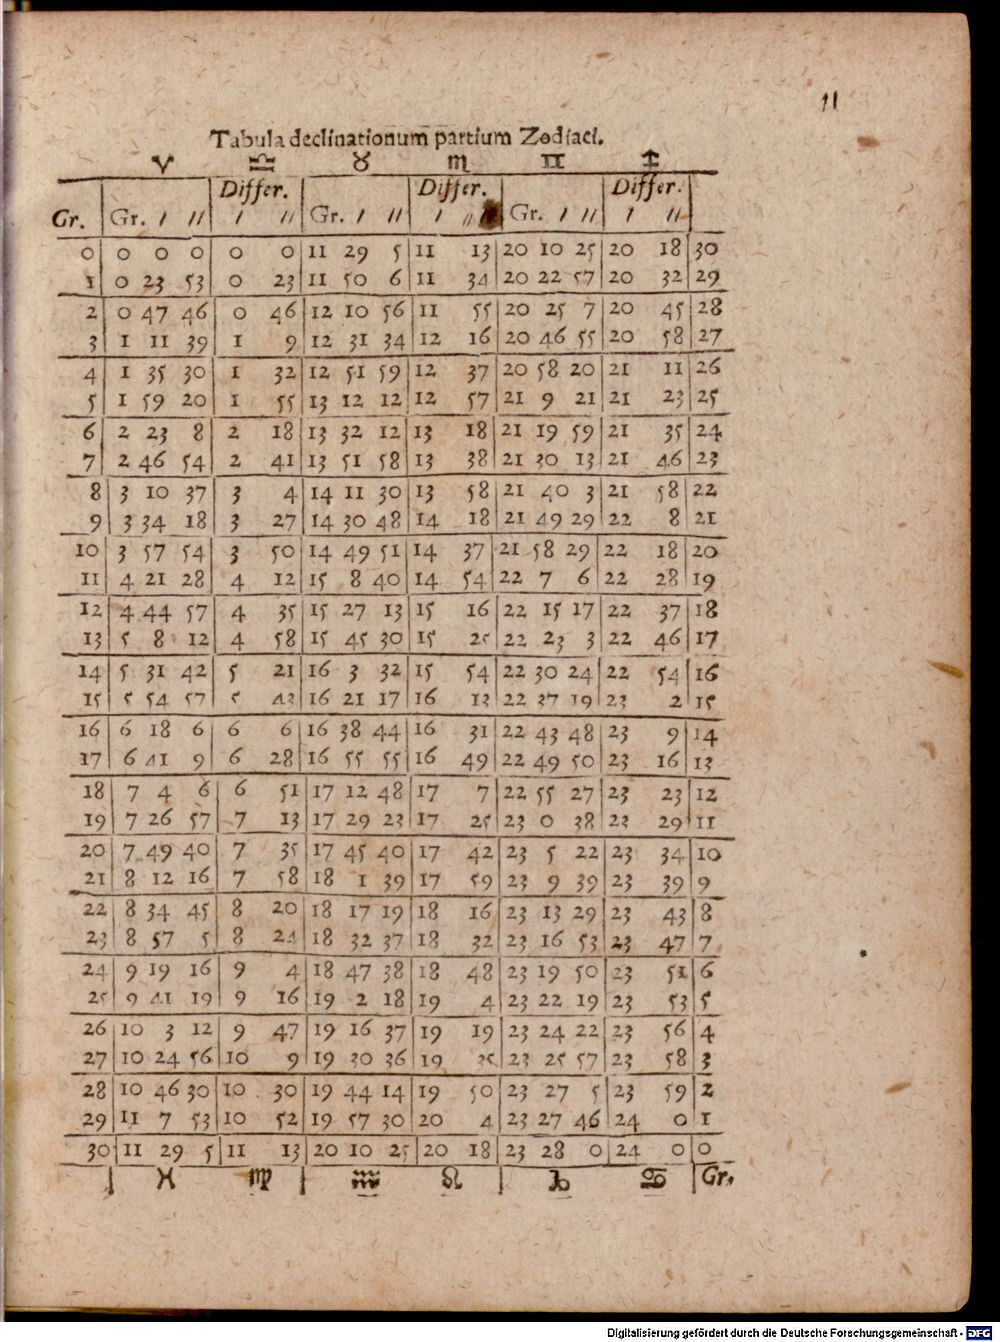 11
Tabula declinationum partium Zodiaci.
♈ ♎ ♉ ♏ ♊ ♐
Differ. Differ. Differ.
Gr. Gr. ′ ″ ′ ″ Gr. ′ ″ ′ ″ Gr. ′ ″ ′ ″
0 0 0 0 0 0 11 29 5 11 13 20 10 25 20 18 30
1 0 23 53 0 23 11 50 6 11 34 20 22 57 20 32 29
2 0 47 46 0 46 12 10 56 11 55 20 25 7 20 45 28
3 1 11 39 1 9 12 31 34 12 16 20 46 55 20 58 27
4 1 35 30 1 32 12 51 59 12 37 20 58 20 21 11 26
5 1 59 20 1 55 13 12 12 12 57 21 9 21 21 23 25
6 2 23 8 2 18 13 32 12 13 18 21 19 59 21 35 24
7 2 46 54 2 41 13 51 58 13 38 21 30 13 21 46 23
8 3 10 37 3 4 14 11 30 13 58 21 40 3 21 58 22
9 3 34 18 3 27 14 30 48 14 18 21 49 29 22 8 21
10 3 57 54 3 50 14 49 51 14 37 21 58 29 22 18 20
11 4 21 28 4 12 15 8 40 14 54 22 7 6 22 28 19
12 4 44 57 4 35 15 27 13 15 16 22 15 17 22 37 18
13 5 8 12 4 58 15 45 30 15 25 22 23 3 22 46 17
14 5 31 42 5 21 16 3 32 15 54 22 30 24 22 54 16
15 5 54 57 5 43 16 21 17 16 13 22 37 19 23 2 15
16 6 18 6 6 6 16 38 44 16 31 22 43 48 23 9 14
17 6 41 9 6 28 16 55 55 16 49 22 49 50 23 16 13
18 7 4 6 6 51 17 12 48 17 7 22 55 27 23 23 12
19 7 26 57 7 13 17 29 23 17 25 23 0 38 23 29 11
20 7 49 40 7 35 17 45 40 17 42 23 5 22 23 34 10
21 8 12 16 7 58 18 1 39 17 59 23 9 39 23 39 9
22 8 34 45 8 20 18 17 19 18 16 23 13 29 23 43 8
23 8 57 5 8 24 18 32 37 18 32 23 16 53 23 47 7
24 9 19 16 9 4 18 47 38 18 48 23 19 50 23 51 6
25 9 41 19 9 16 19 2 18 19 4 23 22 19 23 53 5
26 10 3 12 9 47 19 16 37 19 19 23 24 22 23 56 4
27 10 24 56 10 9 19 30 36 19 35 23 25 57 23 58 3
28 10 46 30 10 30 19 44 14 19 50 23 27 5 23 59 2
29 11 7 53 10 52 19 57 30 20 4 23 27 46 24 0 1
30 11 29 5 11 13 20 10 25 20 18 23 28 0 24 0 0
♓ ♍ ♒ ♌ ♑ ♋ Gr.
Digitalisierung gefördert durch die Deutsche Forschungsgemeinschaft - DFG